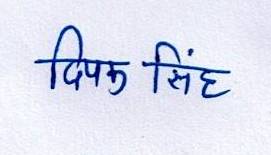 दिपक सिंह